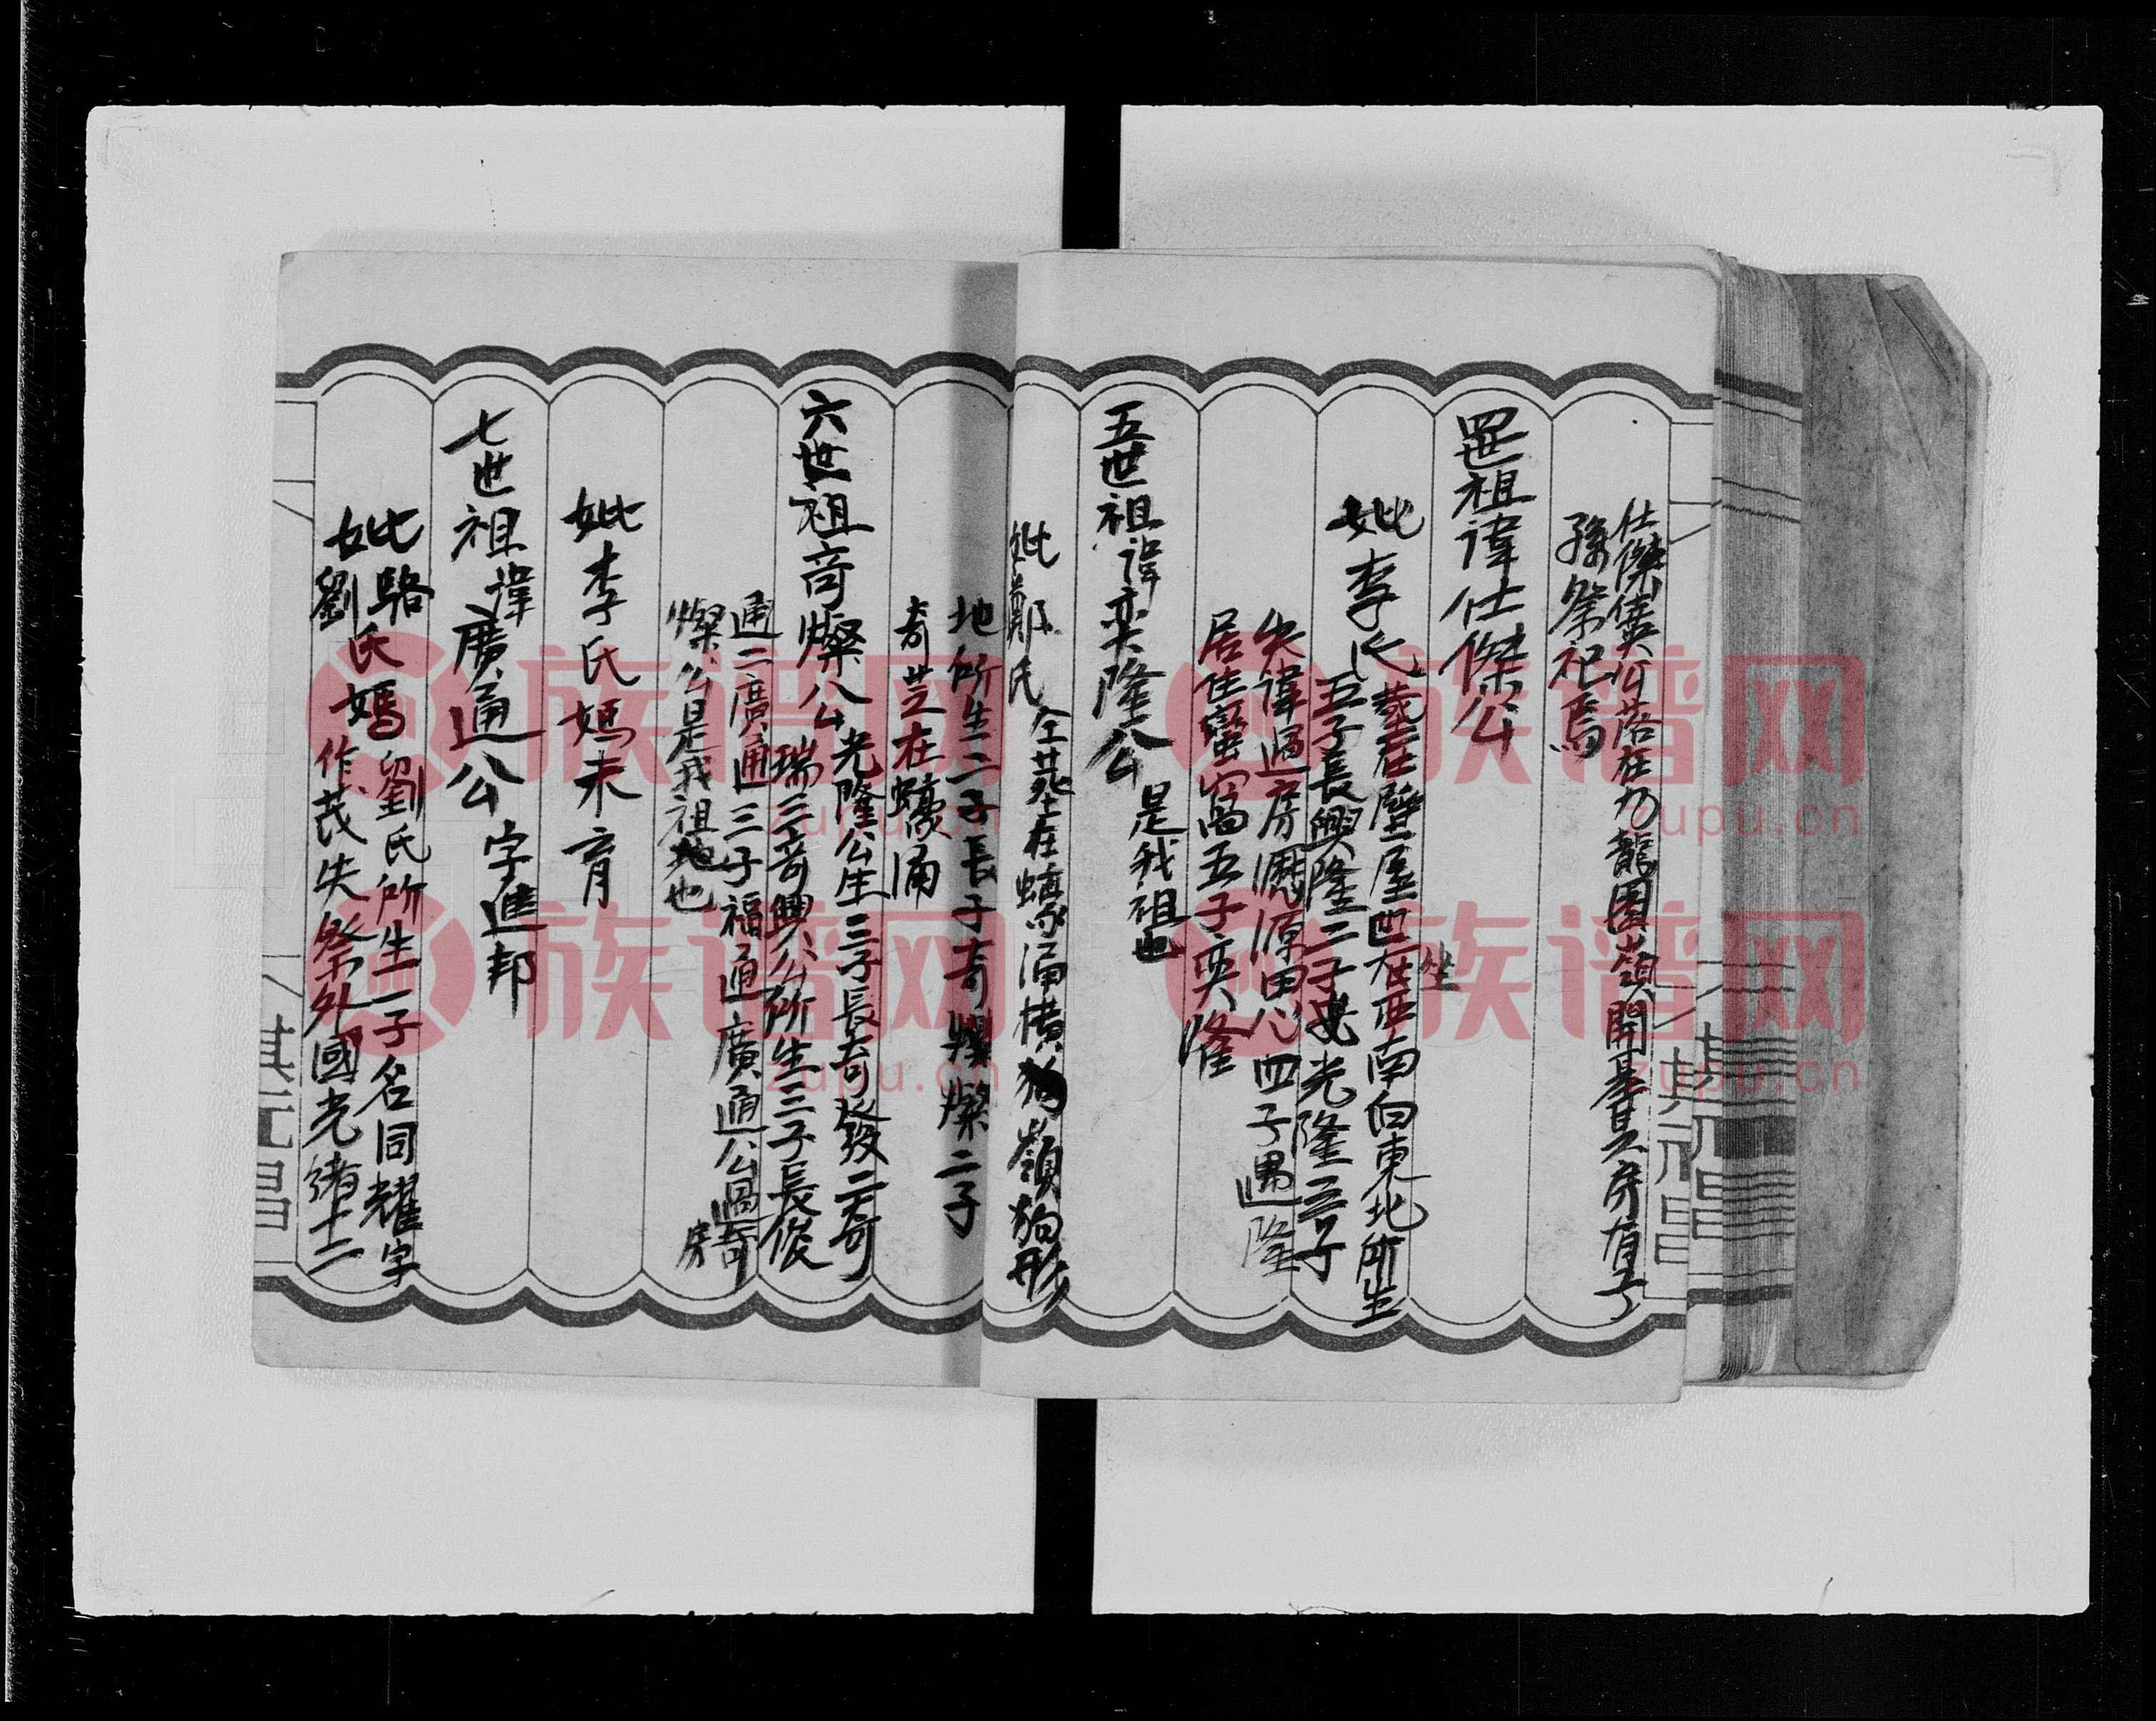 仕傑僙公落在乃龍圍嶺開基其房有子
孫祭祀焉
四世祖諱仕傑公
妣李氏
葬在壁屋凹坐在西南向東北所生
五子長興隆二子光隆三子
失諱過房澗源田心四子遇隆
居住蠻窩五子奕隆
五世祖諱奕隆公
是我祖也
妣鄭氏
仝塟在蠔涌橫狗嶺狗形
地所生二子長子奇燦二子
奇芝在蠔涌
六世祖奇燦公
光隆公生三子長奇發二奇
瑞三奇興公所生三子長俊
通二廣通三子福通廣通公過奇
房
燦公是我祖也
妣李氏媽未育
七世祖諱廣通公
字進邦
妣駱氏媽
劉
劉氏所生一子名同耀字
作茂失祭外國光緒十二
族谱网
zupu.cn
族谱网
zupu.cn
族谱网
zupu.cn
族谱网
zupu.cn